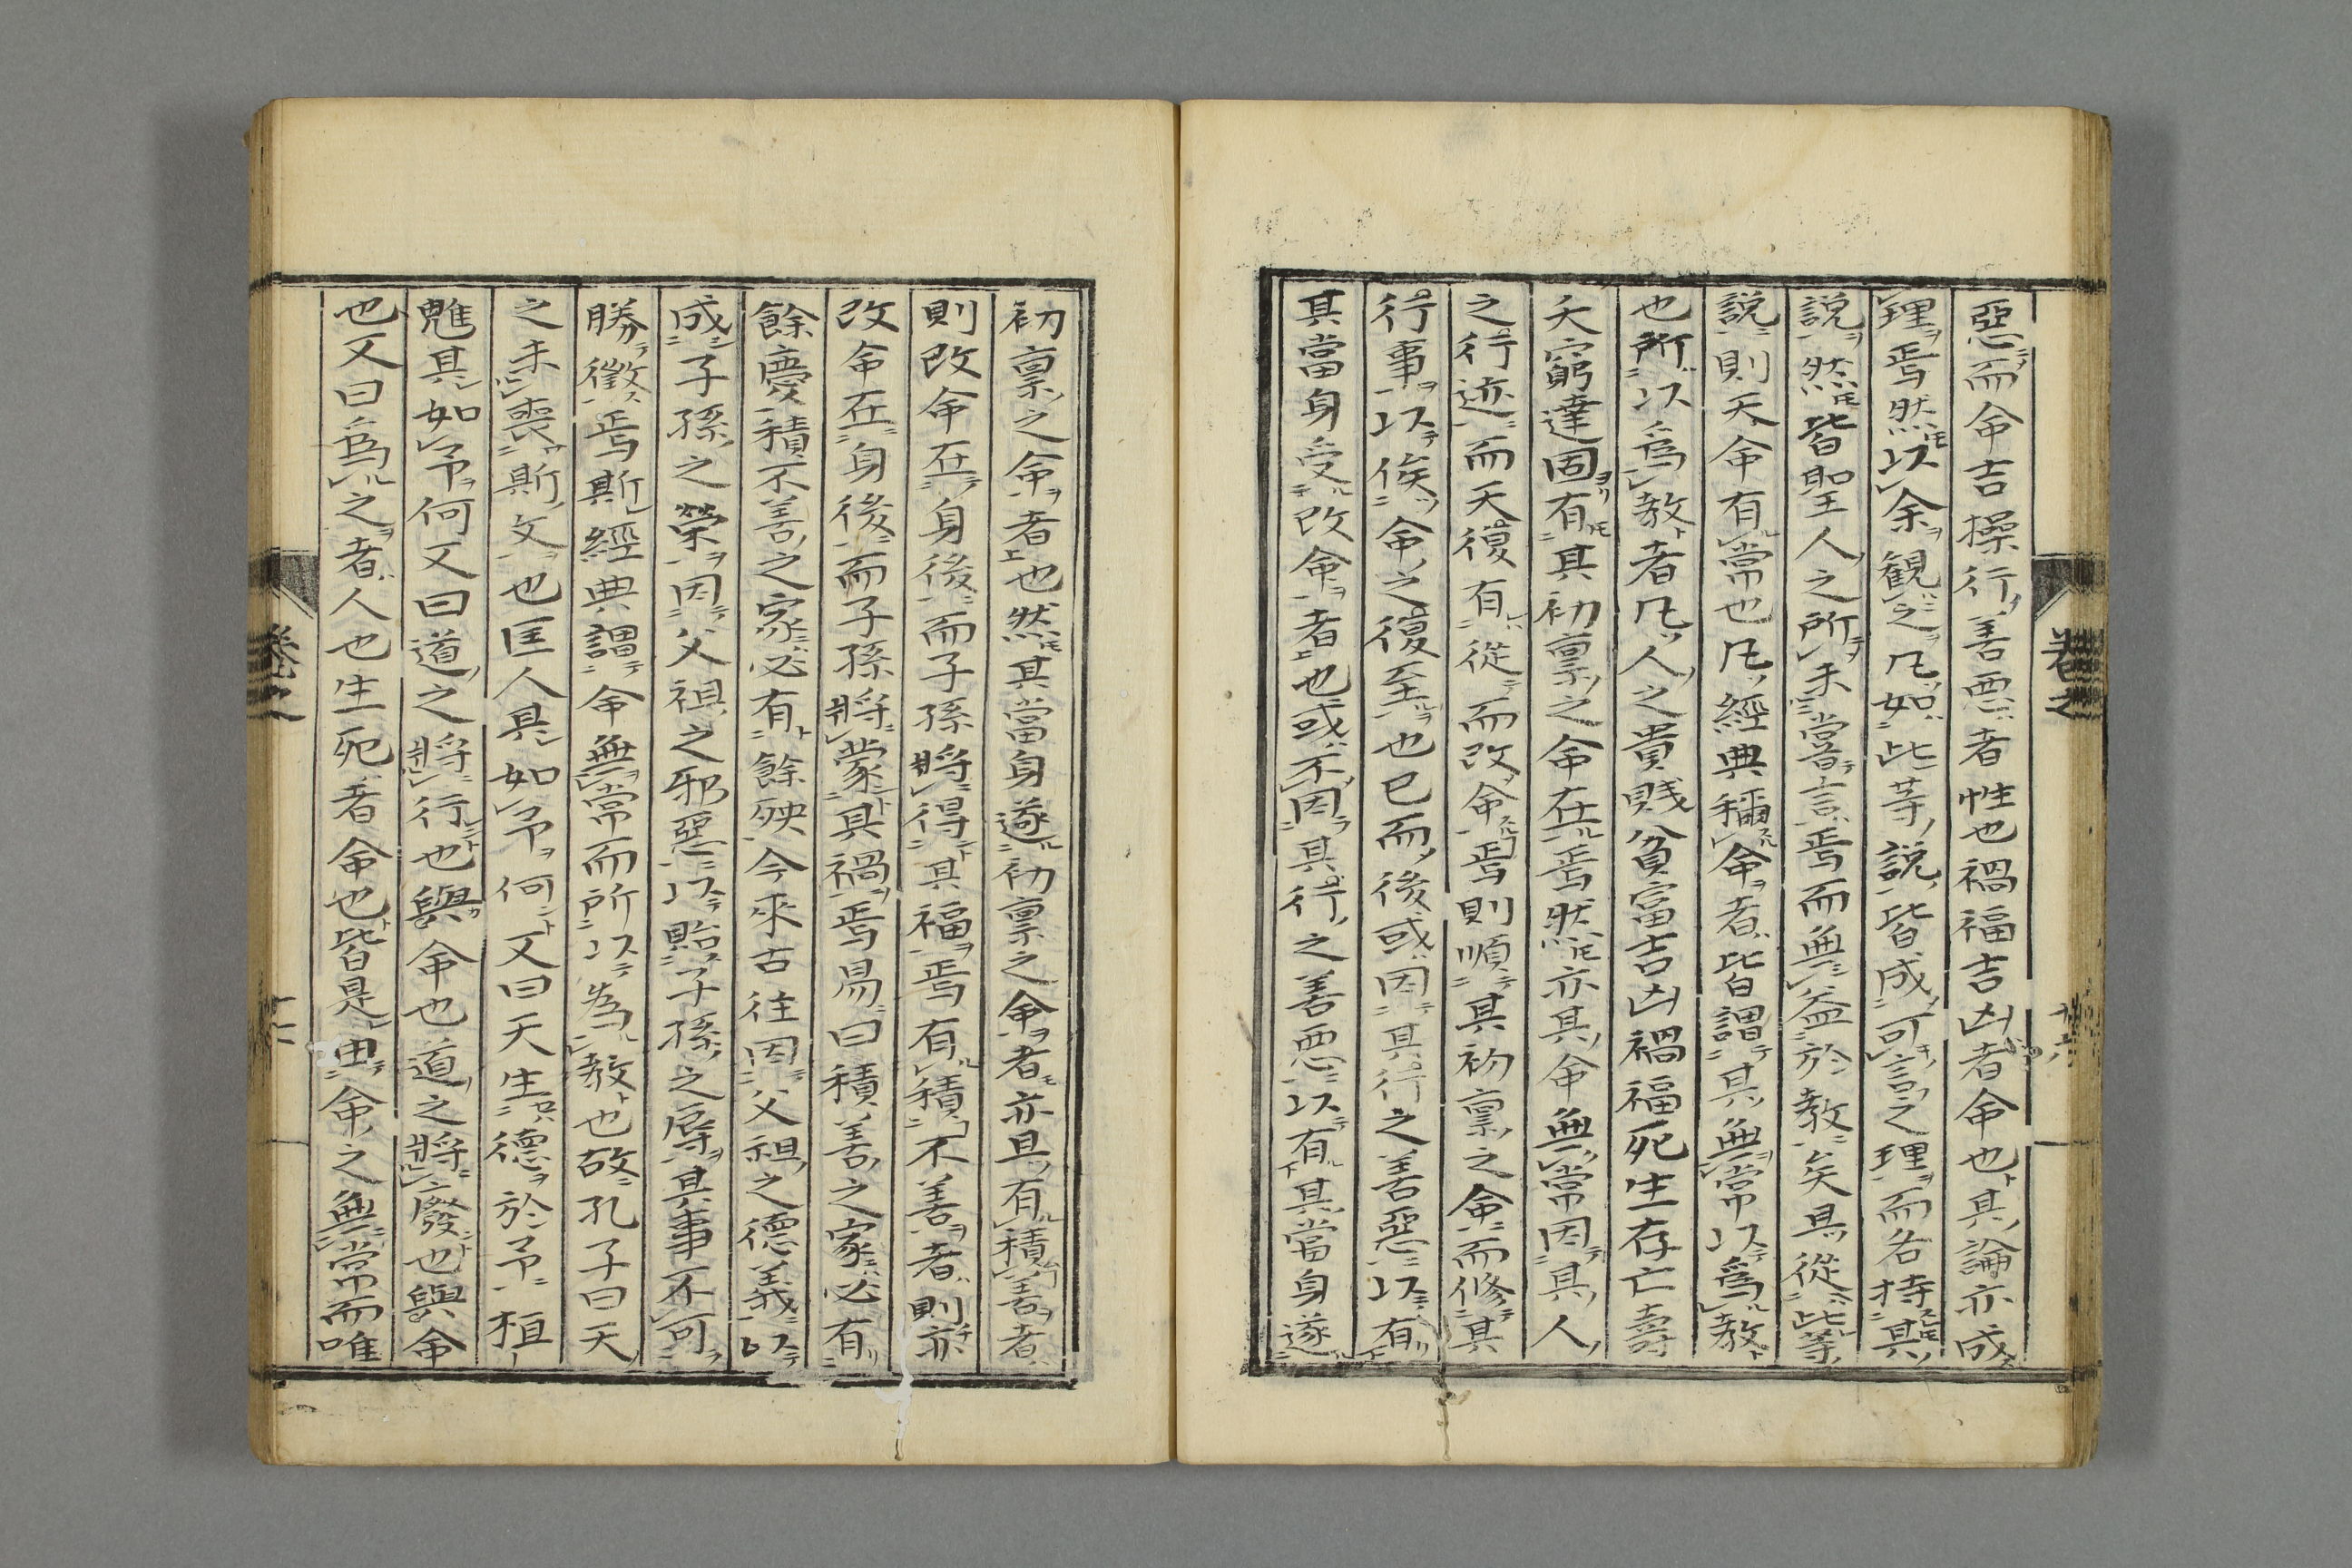 惡而命吉操行善惡者性也禍福吉凶者命也其論亦成
理焉然以余觀之凡如此等說皆成可言之理而各持其
說然皆聖人之所未嘗言焉而無益於教矣具從此等
說則天命有常也凡經典稱命者皆謂其無常以爲教
也所以爲教者凡人之貴賤貧富吉凶禍福死生存亡壽
夭窮達固有其初稟之命在焉然亦其命無常因其人
之行迹而天復有從而改命焉則順其初稟之命而修其
行事以俟命之復至也已而後或因其行之善惡以有
其當身受改命者也或不因其行之善惡以有其當身遂
初稟之命者也然其當身遂初稟之命者亦具有積善者
則改命在身後而子孫將得其福焉有積不善者則亦
改命在身後而子孫將蒙其禍焉易曰積善之家必有
餘慶積不善之家必有餘殃今來古往因父祖之德義以
成子孫之榮因父祖之邪惡以貽子孫之辱其事不可
勝徵焉斯經典謂命無常而所以為教也故孔子曰天
之未喪斯文也匡人具如予何又曰天生德於予桓
魋其如予何又曰道之將行也與命也道之將廢也與命
也又曰爲之者人也生死者命也皆是由命之無常而唯
卷之
卷之